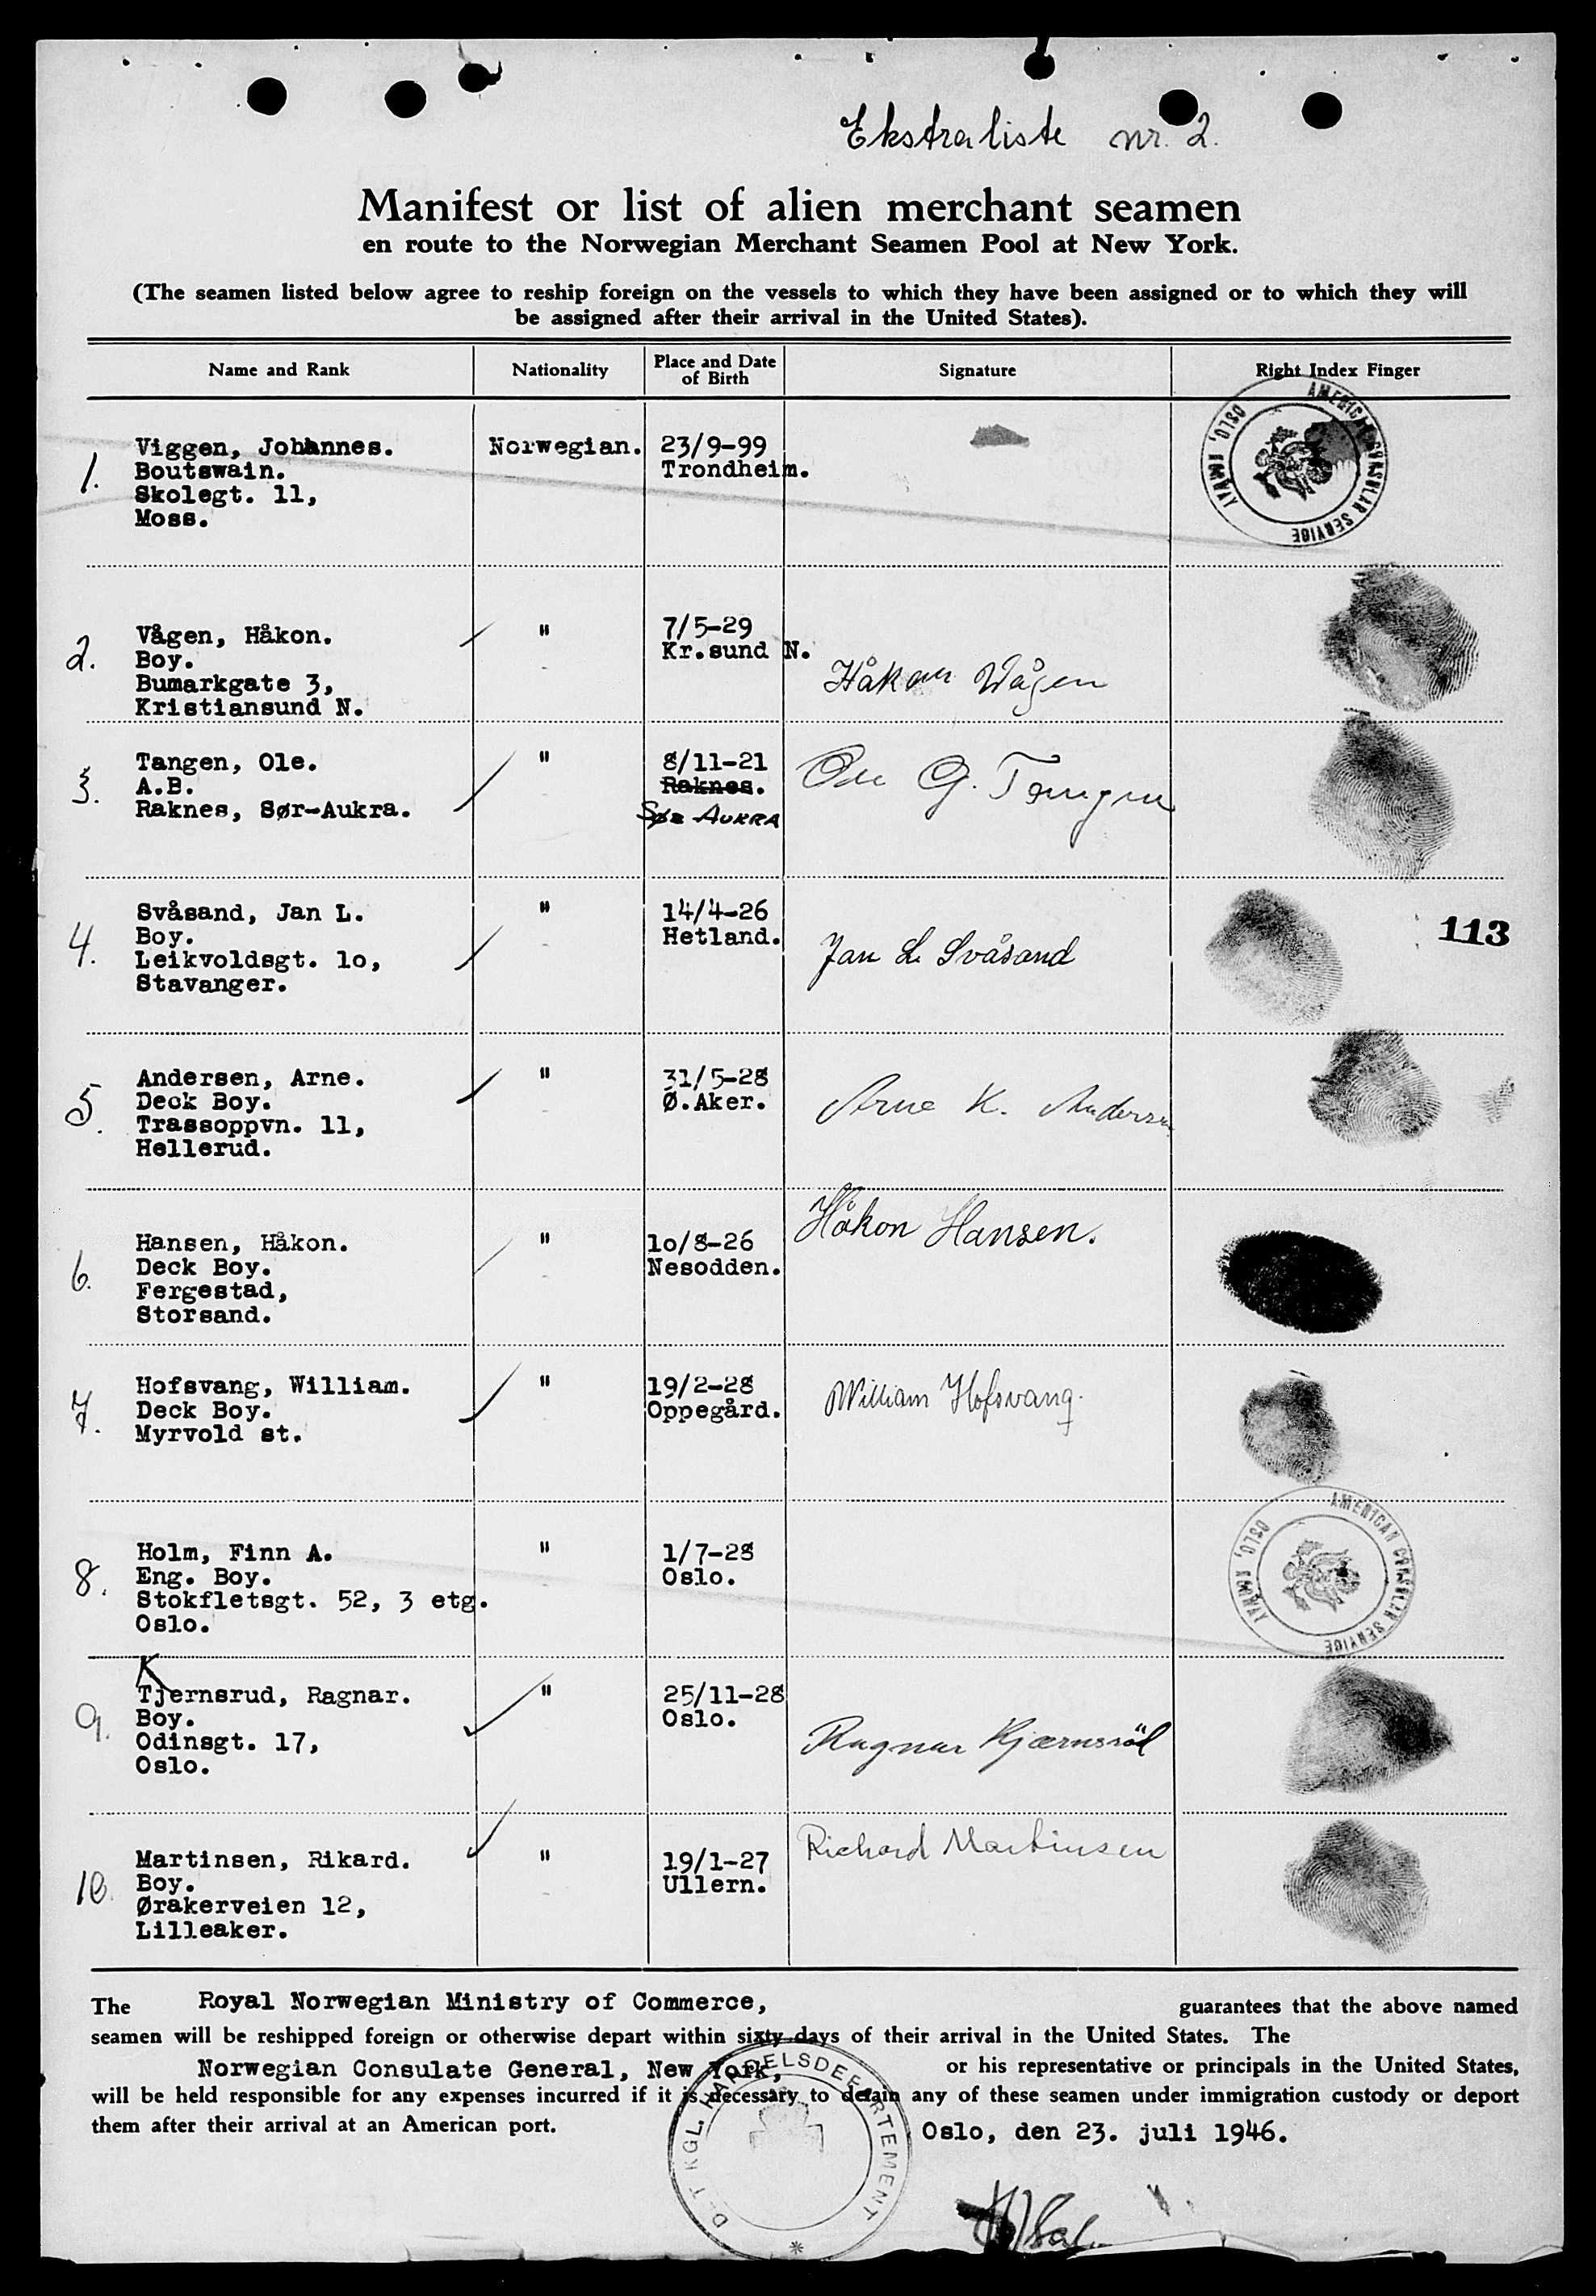 Ekstraliste nr. 2.
Manifest or list of alien merchant seamen
en route to the Norwegian Merchant Seamen Pool at New York.
(The seamen listed below agree to reship foreign on the vessels to which they have been assigned or to which they will
be assigned after their arrival in the United States).
Name and Rank Nationality Place and Date of Birth Signature Right Index Finger
AMERICAN CONSULAR SERVICE OSLO, NORWAY
1. Viggen, Johannes. Norwegian. 23/9-99
Boutswain. Trondheim.
Skolegt. 11,
Moss.
2. Vågen, Håkon. " 7/5-29
Boy. Kr.sund N.
Bumarkgate 3, Håkon Vågen
Kristiansund N.
3. Tangen, Ole. " 8/11-21 Ole G. Tangen
A.B. Raknes.
Raknes, Sør-Aukra. Sør AUKRA
4. Svåsand, Jan L. " 14/4-26
Boy. Hetland. 113
Leikvoldsgt. 1o, Jan L. Svåsand
Stavanger.
5. Andersen, Arne. " 31/5-28
Deck Boy. Ø.Aker. Arne K. Andersen
Trassoppvn. 11,
Hellerud.
6. Hansen, Håkon. " 1o/8-26 Håkon Hansen.
Deck Boy. Nesodden.
Fergestad,
Storsand.
7. Hofsvang, William. " 19/2-28 William Hofsvang.
Deck Boy. Oppegård.
Myrvold st.
8. Holm, Finn A. " 1/7-28
Eng. Boy. Oslo.
Stokfletsgt. 52, 3 etg.
Oslo.
AMERICAN CONSULAR SERVICE OSLO, NORWAY
K
9. Tjernsrud, Ragnar. " 25/11-28
Boy. Oslo.
Odinsgt. 17, Ragnar Kjærnsröd
Oslo.
10. Martinsen, Rikard. " 19/1-27 Richard Martinsen
Boy. Ullern.
Ørakerveien 12,
Lilleaker.
The Royal Norwegian Ministry of Commerce, guarantees that the above named
seamen will be reshipped foreign or otherwise depart within sixty days of their arrival in the United States. The
Norwegian Consulate General, New York, or his representative or principals in the United States,
will be held responsible for any expenses incurred if it is necessary to detain any of these seamen under immigration custody or deport
them after their arrival at an American port.
Oslo, den 23. juli 1946.
DET KGL. HANDELSDEPARTEMENT